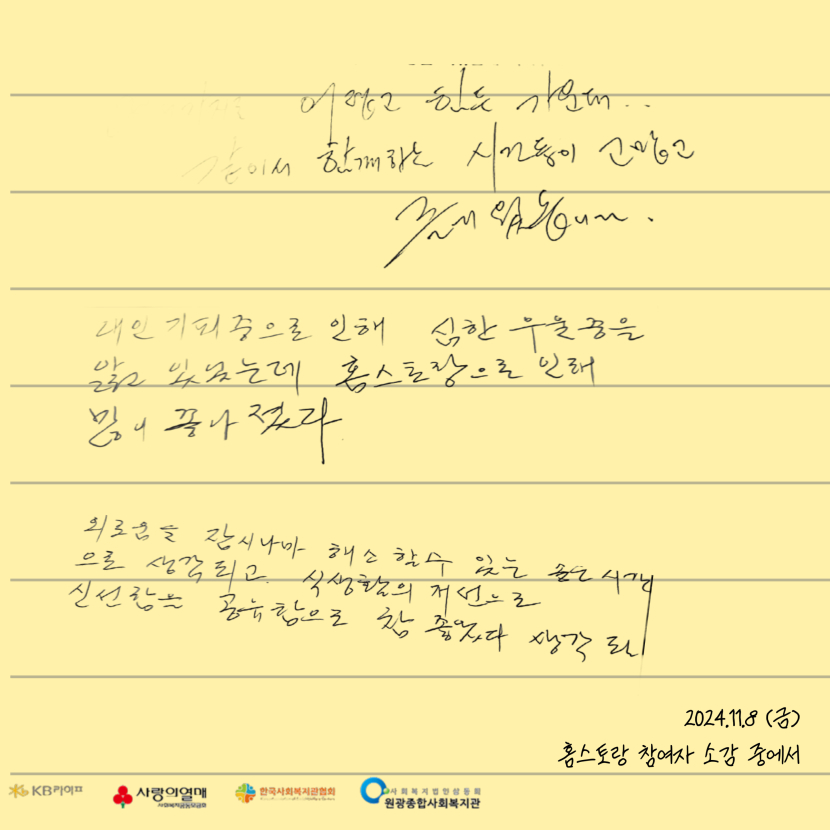 어렵고 힘든 가운데..
같이서 함께하는 시간들이 고맙고
즐거웠습니다.
대인기피증으로 인해 심한 우울증을
앓고 있었는데 홈스토랑으로 인해
많이 좋아졌다
외로움을 잠시나마 해소 할수 있는 좋은 시간
으로 생각되고. 식생활의 개선으로
신선함을 공유함으로 참 좋았다 생각 되
2024.11.8 (금)
홈스토랑 참여자 소감 중에서
KB라이프
사랑의열매
사회복지공동모금회
한국사회복지관협회
사회복지법인삼동회
원광종합사회복지관